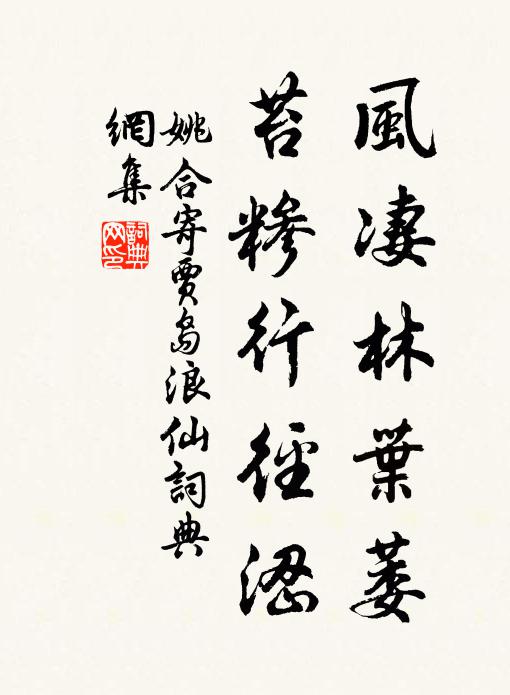 風凄林葉萎
苔糁行徑涩
姚合寄賈島浪仙詞典
網集
詞典
网印